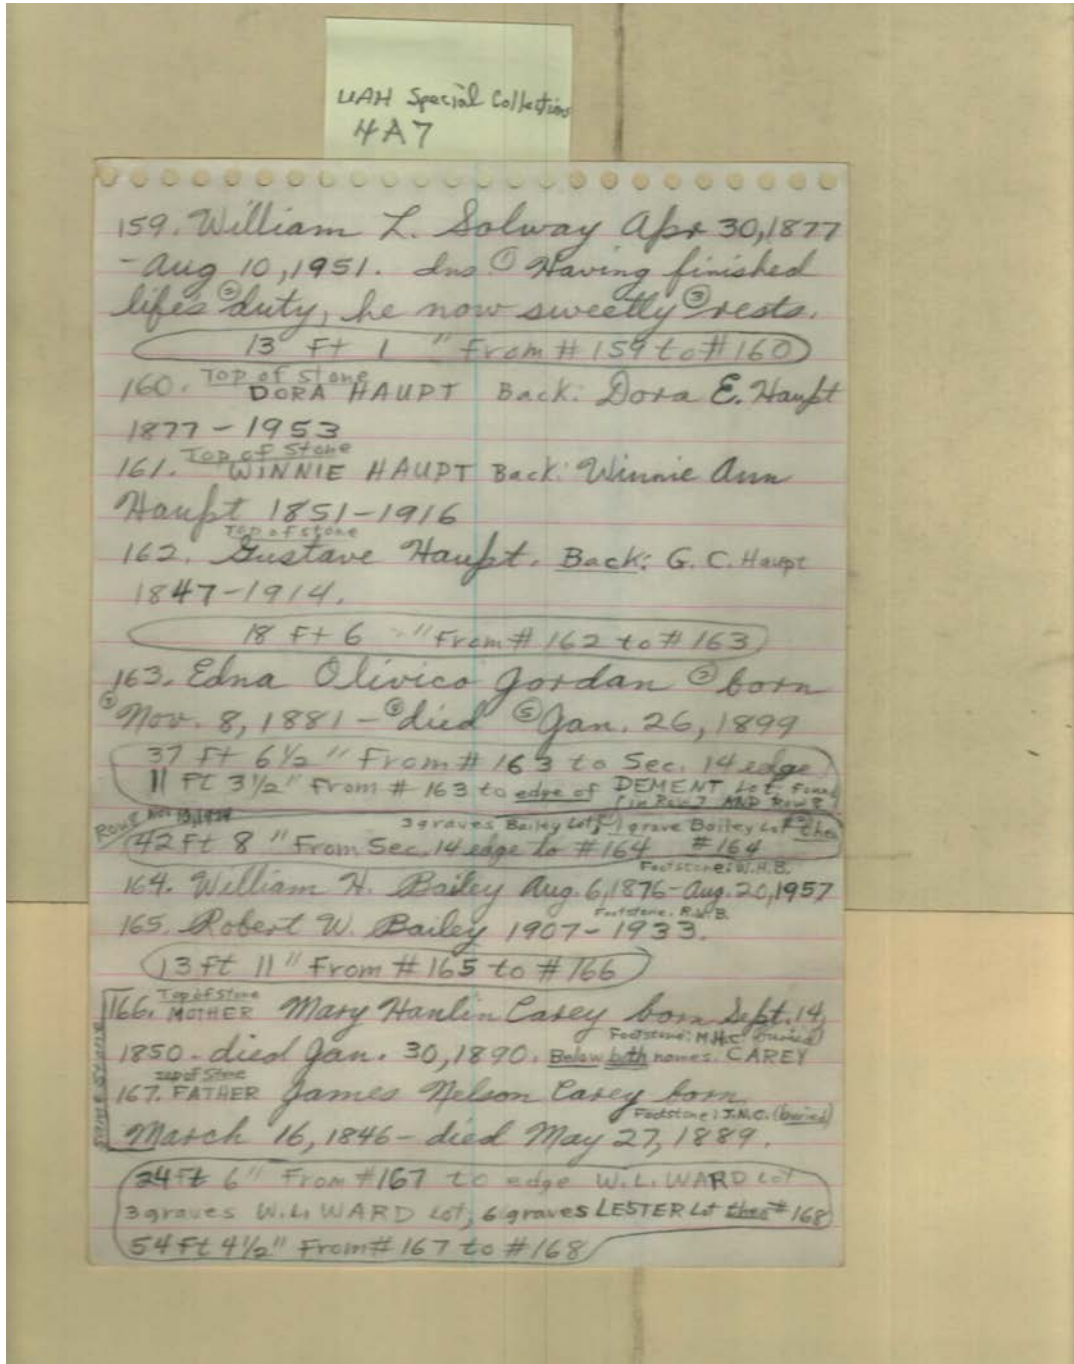 UAH Special Collections
4A7
159. William L. Solway Apr 30, 1877
- Aug 10, 1951. Ins ① Having finished
lifes ② duty, he now sweetly ③ rests.
13 Ft 1 " From # 159 to # 160
Top of Stone
160. DORA HAUPT Back: Dora E. Haupt
1877 - 1953
Top of Stone
161. WINNIE HAUPT Back: Winnie Ann
Haupt 1851-1916
Top of Stone
162. Gustave Haupt. Back: G. C. Haupt
1847-1914.
18 Ft 6 " From # 162 to # 163
163. Edna Olivico Jordan ② born
Nov. 8, 1881 - died ⑤ Jan. 26, 1899
37 Ft 6 1/2 " From # 163 to Sec. 14 edge
11 Ft 3 1/2" From # 163 to edge of DEMENT Lot, found
(in Row 7 AND Row 8)
Row 8
3 graves Bailey Lot, 1 grave Bailey Lot then
42 Ft 8 " From Sec. 14 edge to # 164 # 164
Footstone: W.H.B.
164. William H. Bailey Aug. 6, 1876 - Aug. 20, 1957
Footstone: R.W.B.
165. Robert W. Bailey 1907 - 1933.
13 Ft 11 " From # 165 to # 166
Same Stone
Top of Stone
166. MOTHER Mary Hanlin Carey born Sept. 14,
Footstone: M.H.C. (buried)
1850 - died Jan. 30, 1890. Below both names. CAREY
Top of Stone
167. FATHER James Nelson Carey born
Footstone: J.N.C. (buried)
March 16, 1846 - died May 27, 1889.
24 Ft 6 " From # 167 to edge W. L. WARD Lot
3 graves W. L. WARD Lot, 6 graves LESTER Lot then # 168
54 Ft 4 1/2" From # 167 to # 168